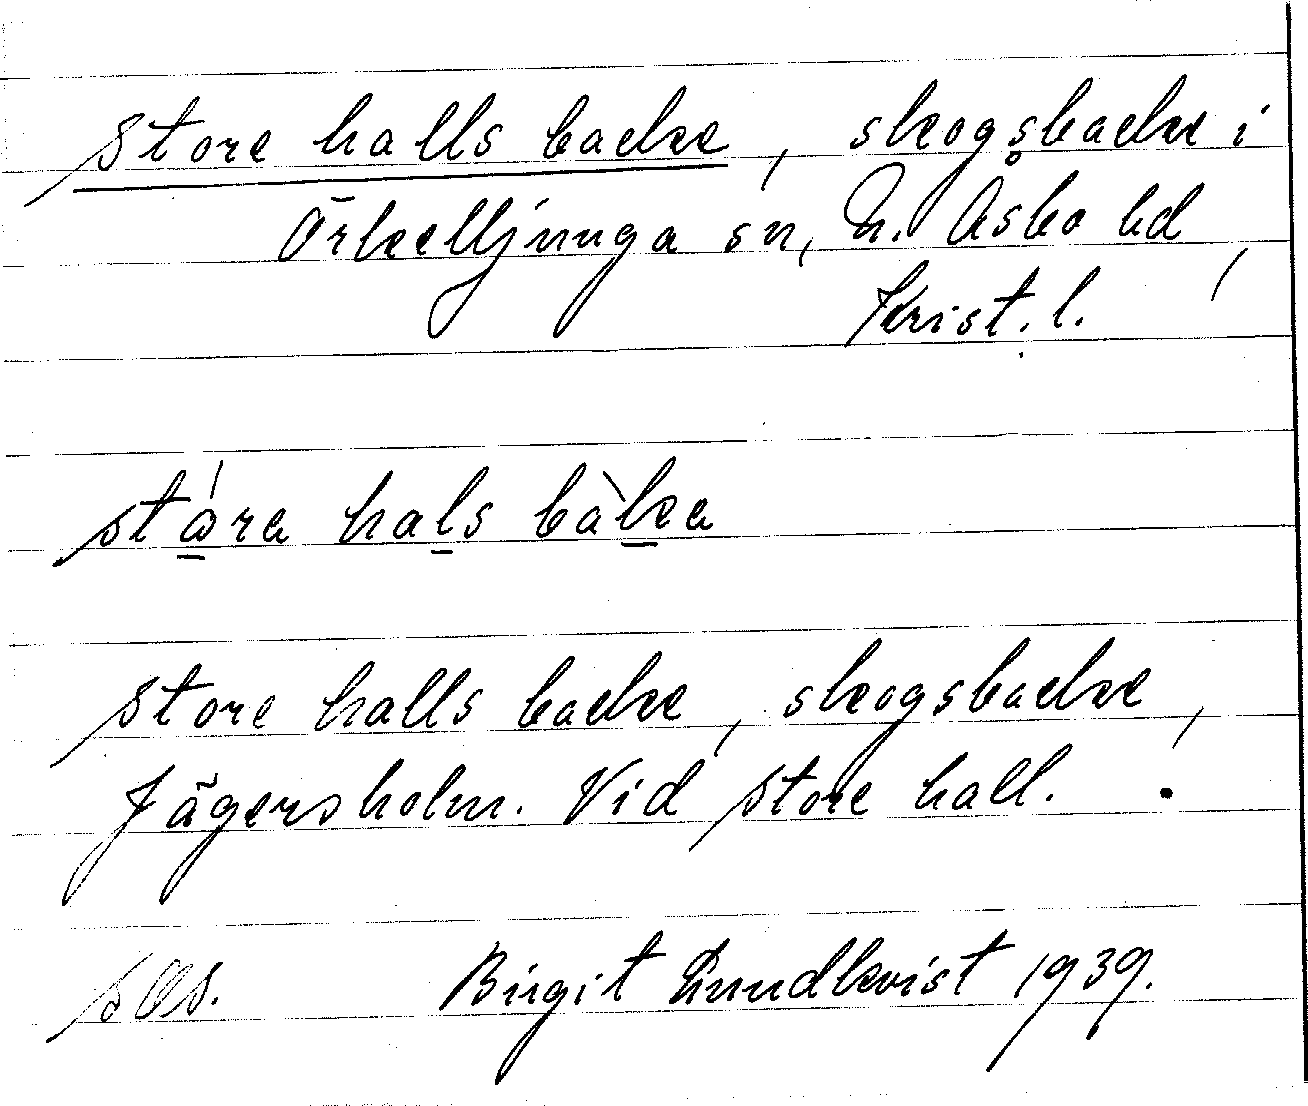 Store halls backe, skogsbacke i
Örkelljunga sn, N. Åsbo hd,
Krist. l.
stǻra hals bàka
Store halls backe, skogsbacke,
Jägersholm. Vid Store hall.
Birgit Lundkvist 1939.